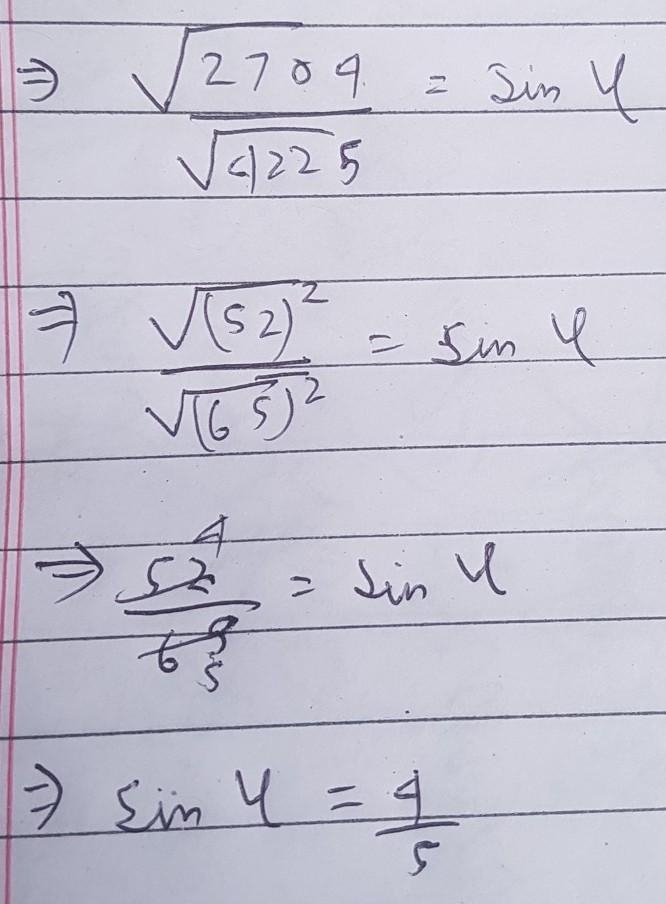 ⇒ √2704 / √4225 = Sin Y
⇒ √(52)² / √(65)² = Sin Y
⇒ 52 4 / 65 5 = Sin Y
⇒ Sin Y = 4/5